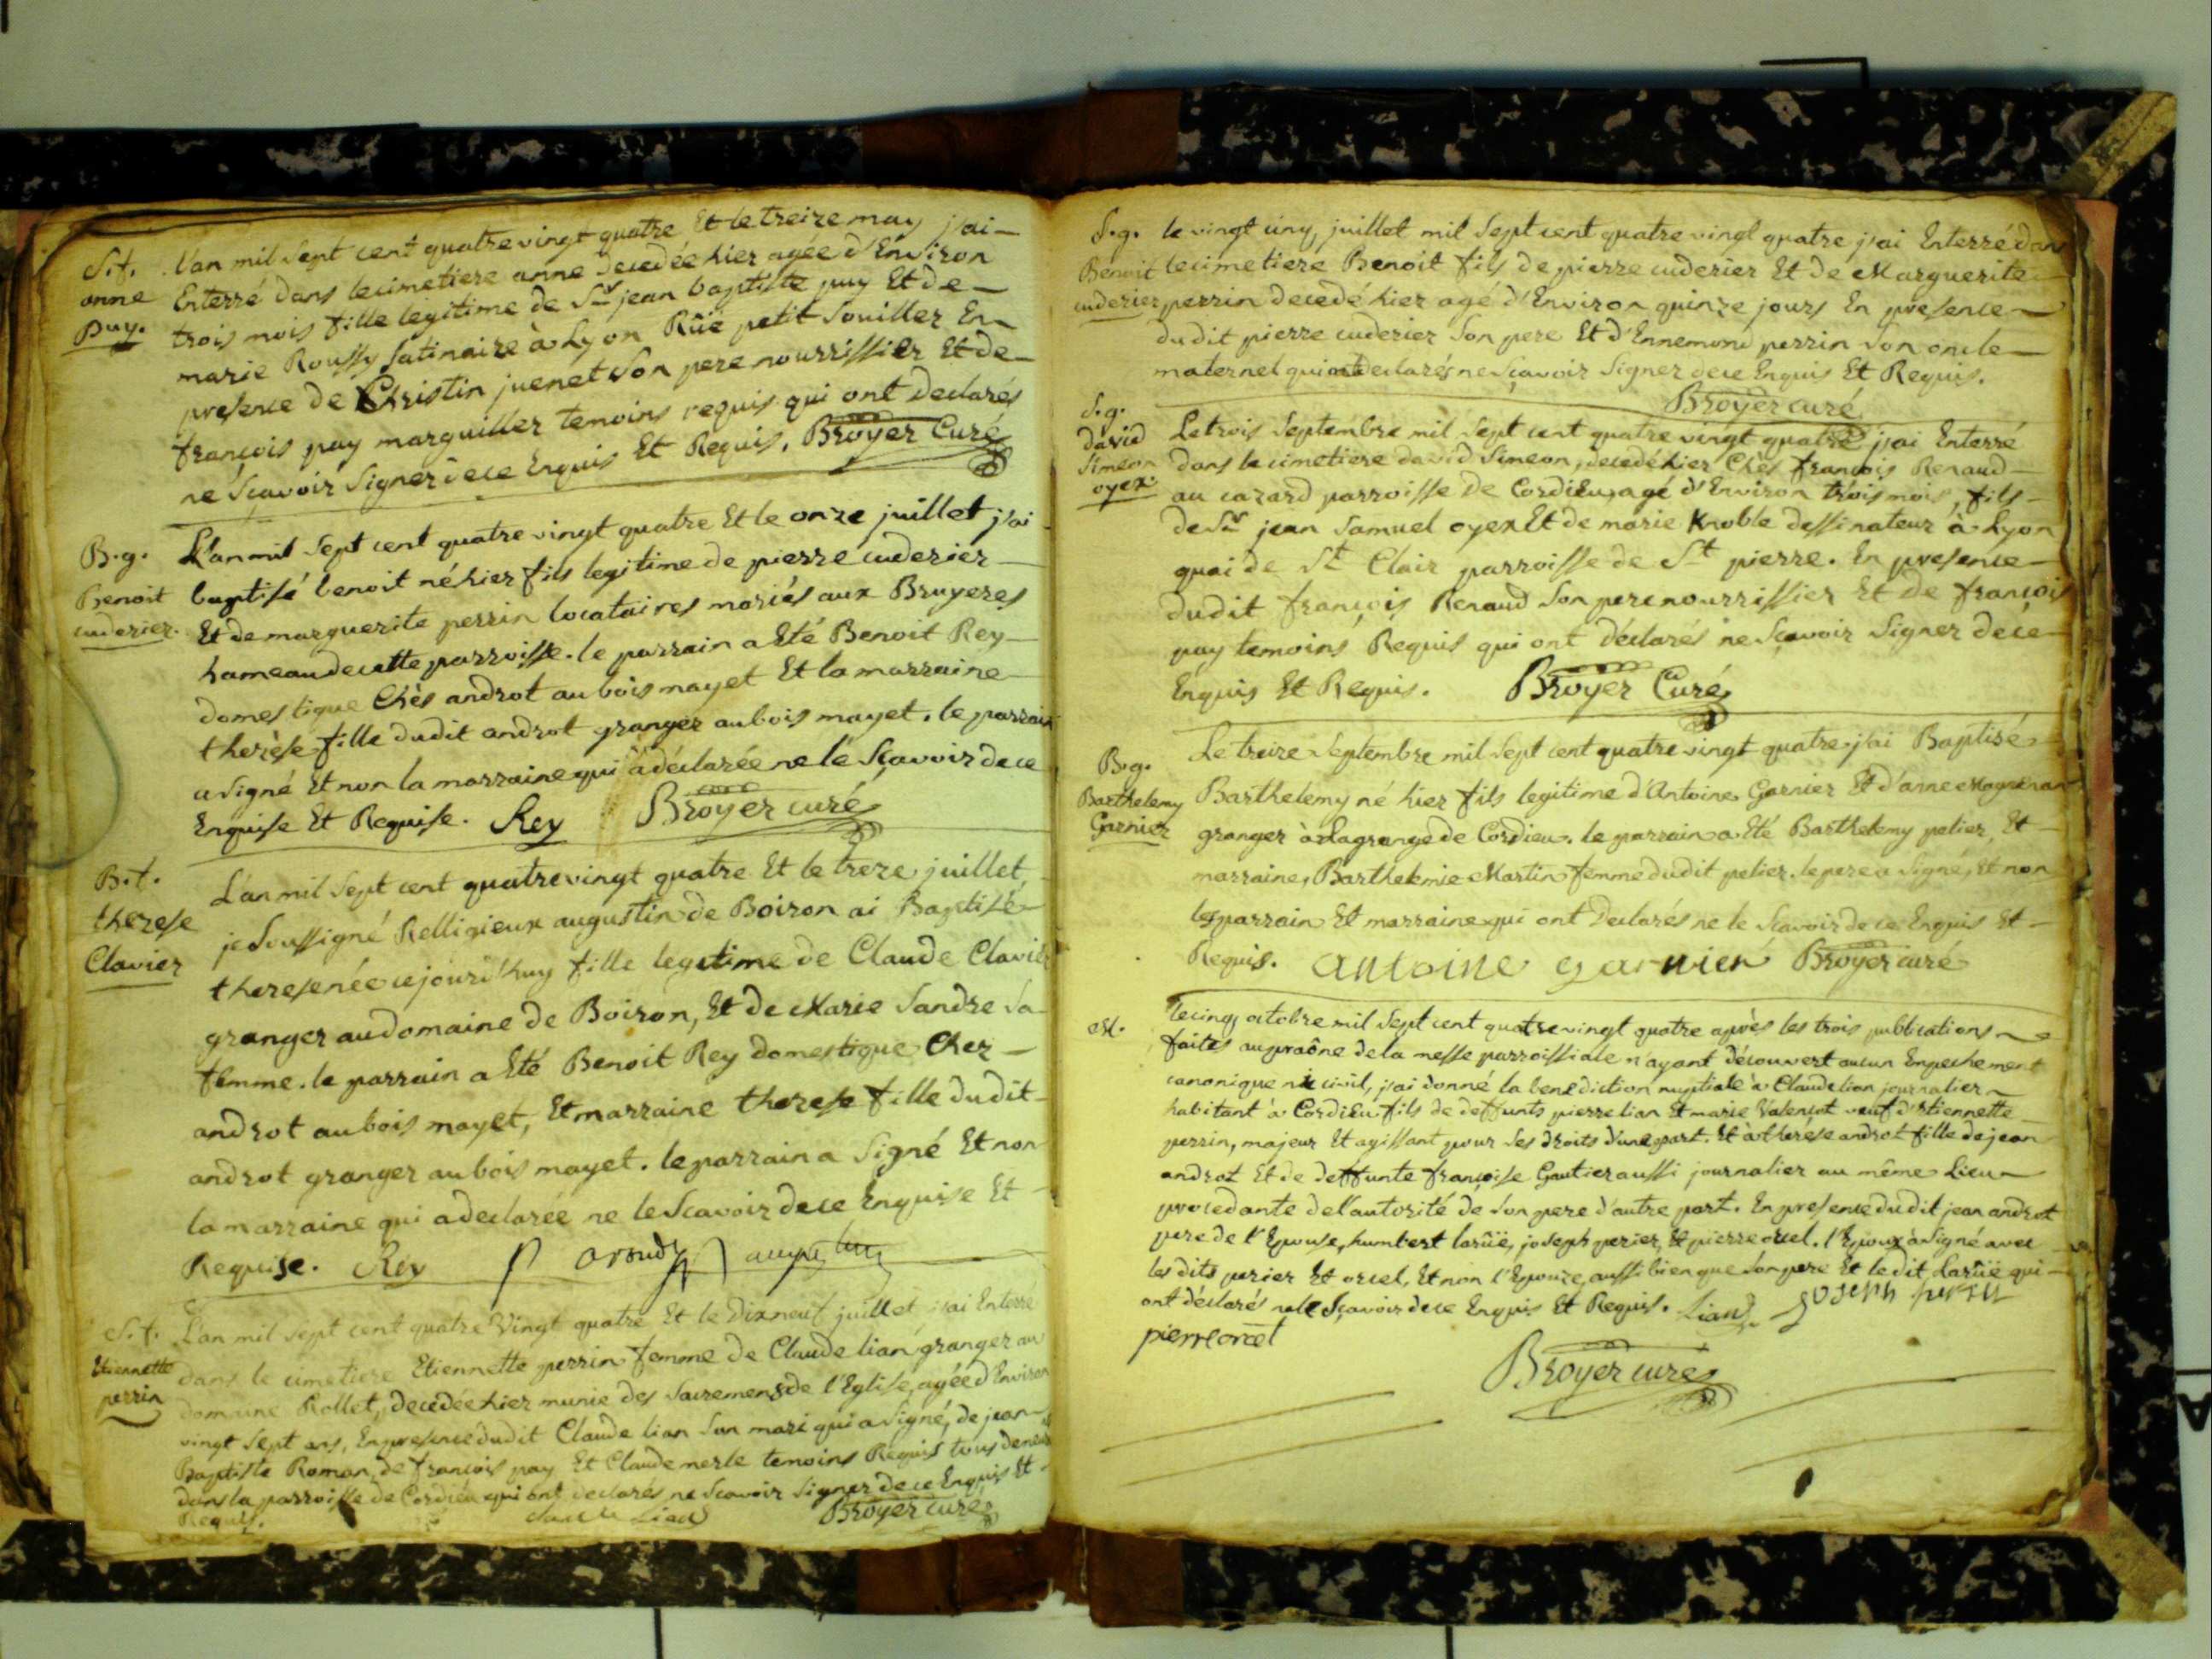 S.f.
anne
puy.
L'an mil sept cent quatre vingt quatre Et le treize may j'ai
Enterré dans le cimetiere anne decedée hier agée d'Environ
trois mois fille legitime de Sr jean baptiste puy Et de
marie Roussy satinaire à Lyon Rüe petit Souiller En
presence de Christin juenet son pere nourrissier Et de
françois pay marguiller temoins requis qui ont declarés
ne sçavoir signer de ce Enquis Et Requis. Broyer Curé
B.g.
Benoit
cuderier.
L'an mil sept cent quatre vingt quatre Et le onze juillet j'ai
baptisé benoit né hier fils legitime de pierre cuderier
Et de marguerite perrin locataires mariés aux Bruyeres
hameau de cette parroisse. le parrain a Eté Benoit Rey
domestique Chès androt au bois mayet Et la marraine
therèse fille dudit androt granger au bois mayet. le parrain
a signé Et non la marraine qui a declarée ne le sçavoir de ce
Enquise Et Requise. Rey Broyer curé
B.f.
therese
Clavier
L'an mil sept cent quatre vingt quatre Et le treze juillet
je soussigné Relligieux augustin de Boiron ai Baptisé
therese née cejourd'huy fille legitime de Claude Clavier
granger au domaine de Boiron, Et de Marie Sandre sa
femme. le parrain a Eté Benoit Rey domestique Chez
androt au bois mayet, Et marraine therese fille dudit
androt granger au bois mayet. le parrain a signé Et non
la marraine qui a declarée ne le sçavoir de ce Enquise Et
Requise. Rey
S.f.
Etiennette
perrin
L'an mil sept cent quatre Vingt quatre Et le dixneuf juillet j'ai Enterré
dans le cimetiere Etiennette perrin femme de Claude lian granger au
domaine Rollet, decedée hier munie des sacremens de l'Eglise, agée d'Environ
vingt sept ans, En presence dudit Claude lian son mari qui a signé, de jean
Baptiste Roman, de françois pay Et Claude merle temoins Requis tous
dans la parroisse de Cordieu qui ont declarés ne sçavoir signer de ce Enquis Et
Requis. Claude Lian Broyer curé
S.g.
Benoit
cuderier
le vingt cinq juillet mil sept cent quatre vingt quatre j'ai Enterré dans
le cimetiere Benoit fils de pierre cuderier Et de Marguerite
perrin decedé hier agé d'Environ quinze jours En presence
dudit pierre cuderier son pere Et d'Ennemond perrin son oncle
maternel qui ont declarés ne sçavoir signer de ce Enquis Et Requis.
Broyer curé
S.g.
david
Simeon
oyex
Le trois septembre mil sept cent quatre vingt quatre j'ai Enterré
dans le cimetiere david Simeon, decedé hier Chès françois Renaud
au cazard parroisse de Cordieu, agé d'Environ trois mois, fils
de Sr jean Samuel oyex Et de marie Knoble dessinateur à Lyon
quai de St Clair parroisse de St pierre. En presence
dudit françois Renaud son pere nourrissier Et de françois
pay temoins Requis qui ont déclarés ne sçavoir signer de ce
Enquis Et Requis. Broyer Curé
B.g.
Barthelemy
Garnier
Le treize septembre mil sept cent quatre vingt quatre j'ai Baptisé
Barthelemy né hier fils legitime d'Antoine Garnier Et d'anne
granger à Lagrange de Cordieu. le parrain a Eté Barthelemy pelier, Et
marraine, Barthelemie Martin femme dudit pelier. le pere a signé, Et non
les parrain Et marraine qui ont declarés ne le sçavoir de ce Enquis Et
Requis. antoine garnier Broyer curé
M.
le cinq octobre mil sept cent quatre vingt quatre après les trois publications
faites au praône de la messe parroissiale n'ayant découvert aucun Empechement
canonique ni civil, j'ai donné la benediction nuptiale à Claude lian journalier
habitant à Cordieu fils de deffunts pierre lian Et marie Valençot veuf d'Etiennette
perrin, majeur Et agissant pour ses droits d'une part. Et à thérèse androt fille de jean
androt Et de deffunte françoise Gautier aussi journalier au même Lieu
procedante de l'autorité de son pere d'autre part. En presence dudit jean androt
pere de l'Epouse, humbert larüe, joseph perier, Et pierre orcel. l'Epoux a signé avec
les dits perier Et orcel, Et non l'Epouze, aussi bien que son pere Et le dit Larüe qui
ont déclarés ne le sçavoir de ce Enquis Et Requis. Lian joseph perier
pierre orcel
Broyer curé